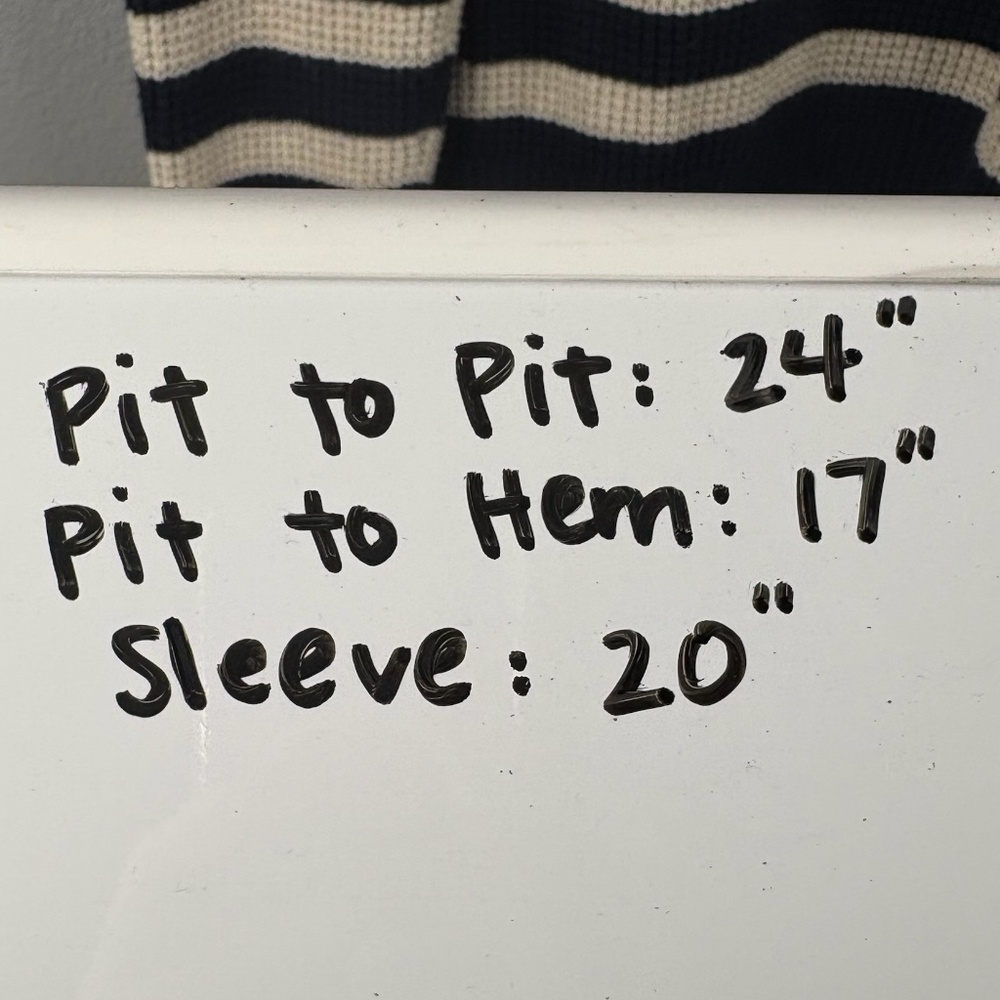 Pit to Pit: 24"
Pit to Hem: 17"
Sleeve: 20"